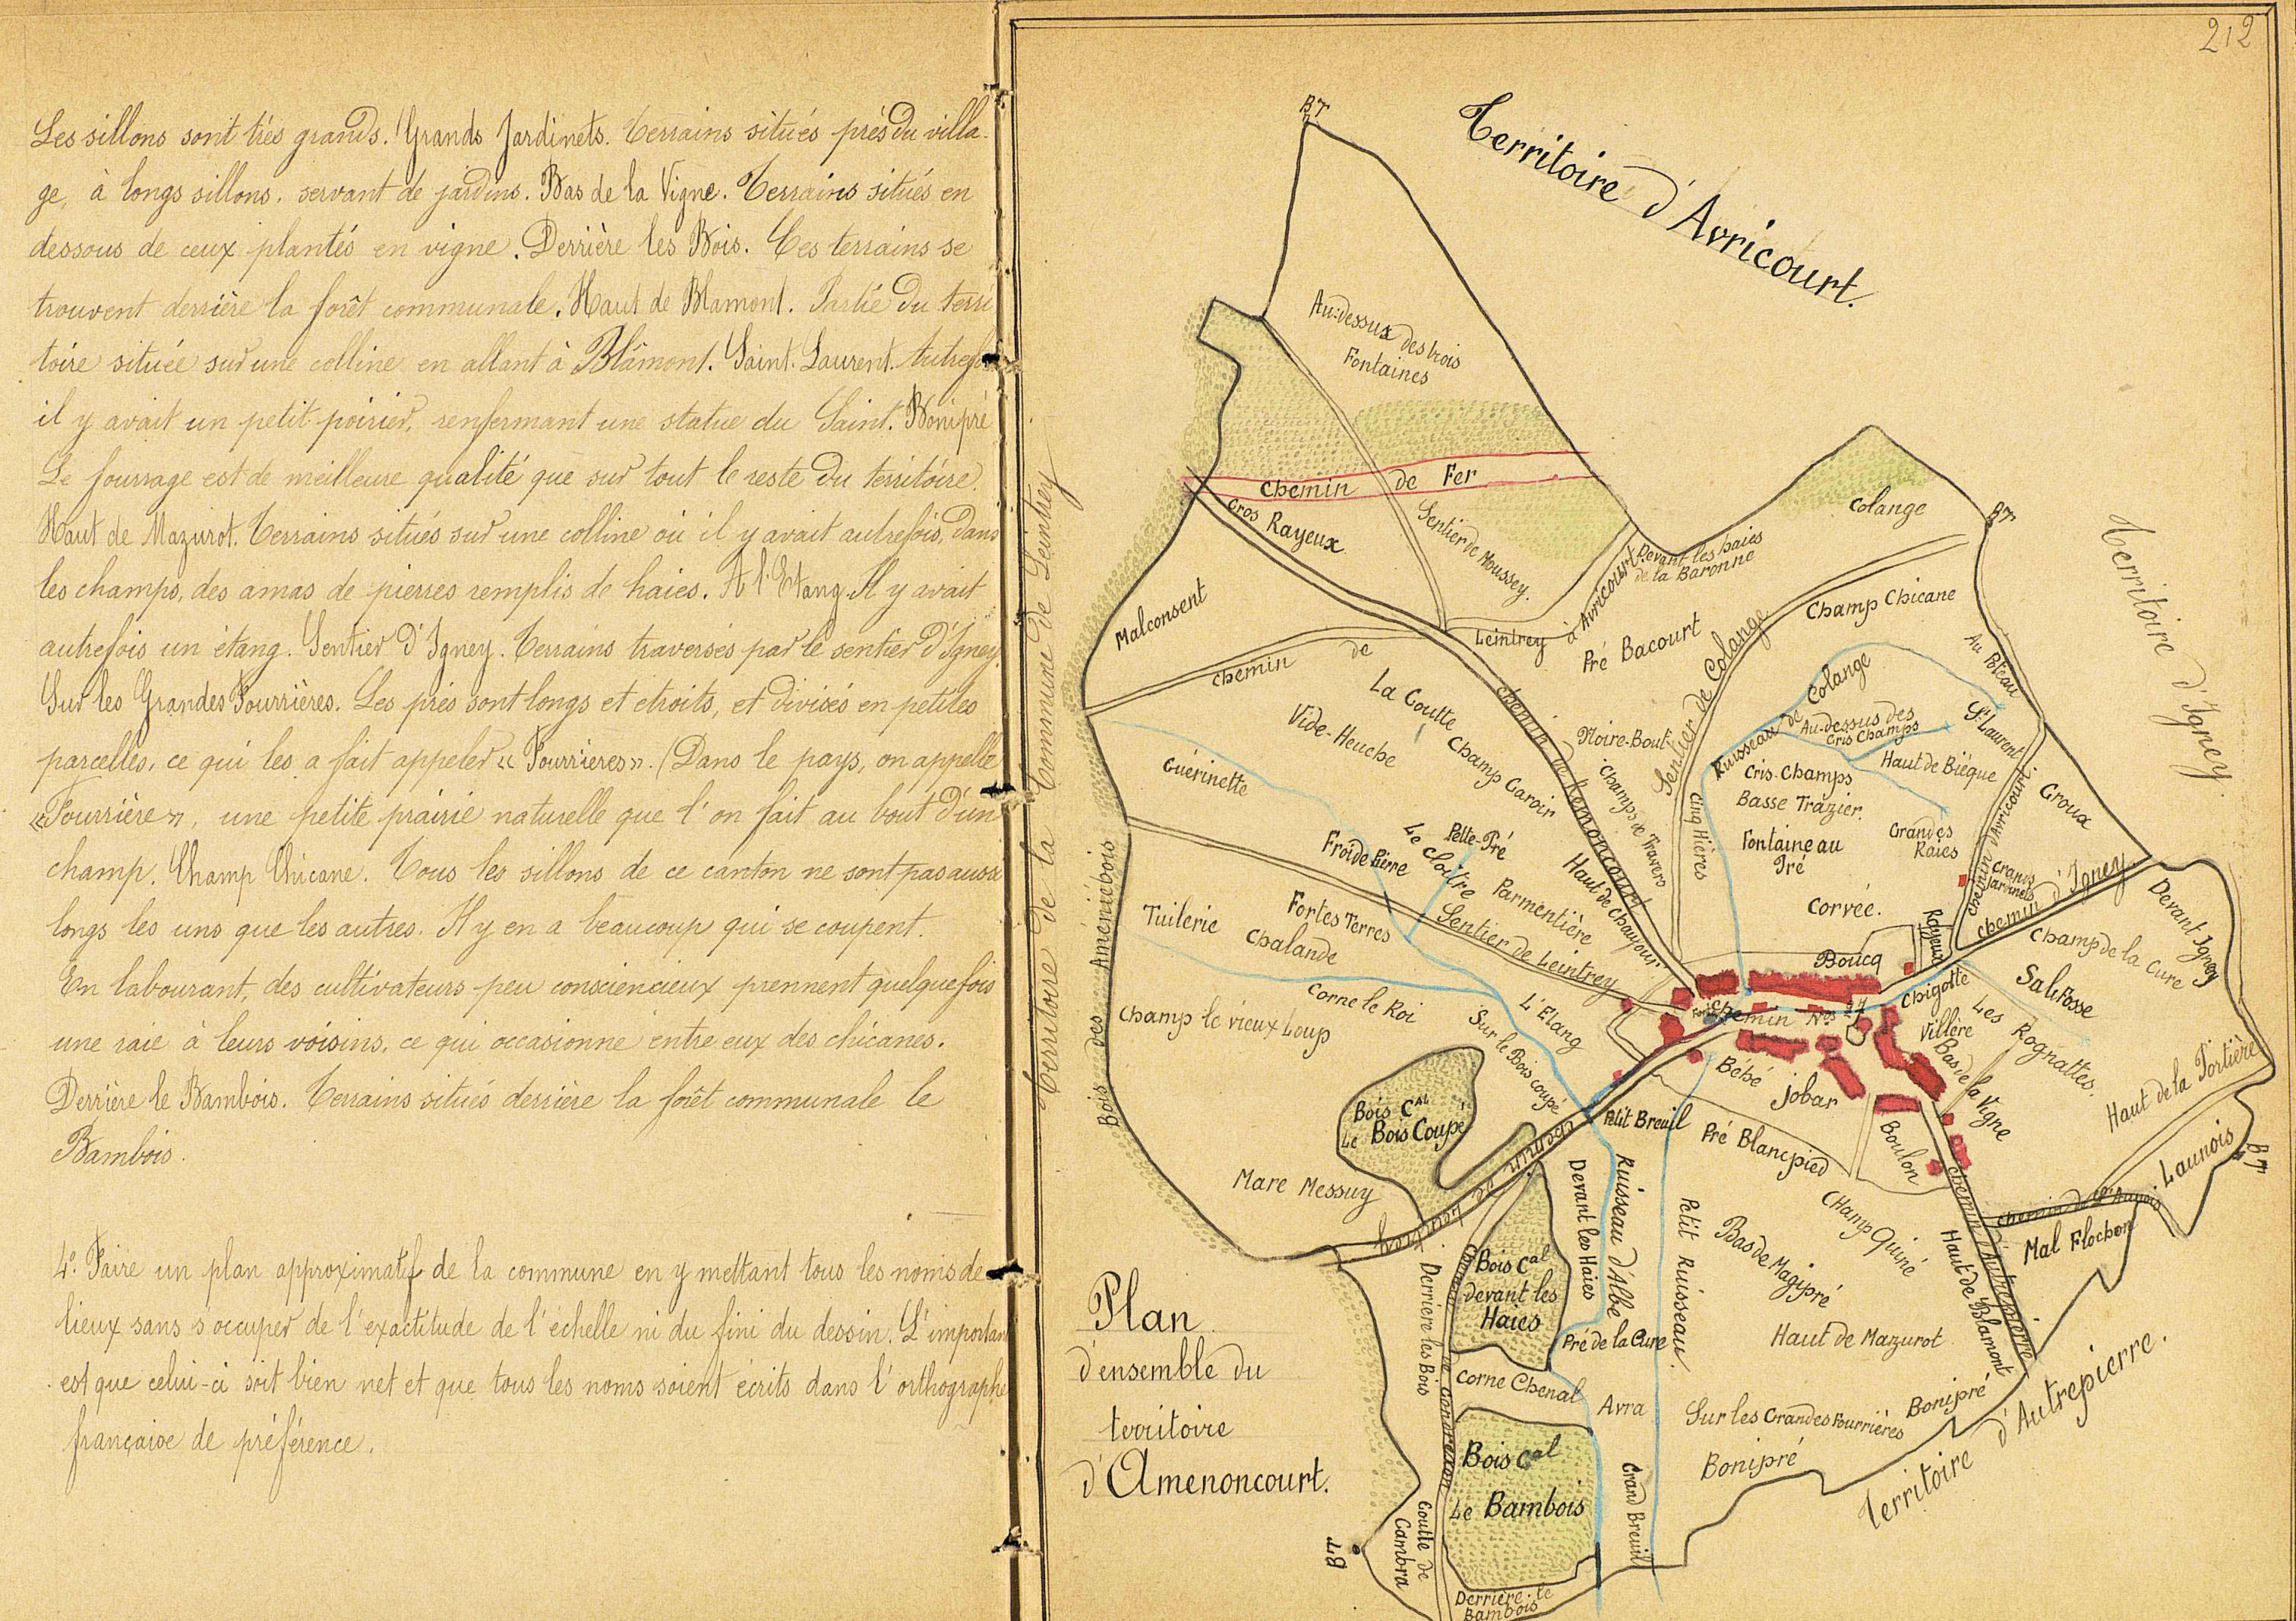 Les sillons sont très grands. Grands Jardinets. Terrains situés près du villa-
ge, à longs sillons, servant de jardins. Bas de la Vigne. Terrains situés en
dessous de ceux plantés en vigne. Derrière les Bois. Ces terrains se
trouvent derrière la forêt communale. Haut de Blamont. Partie du terri
toire située sur une colline en allant à Blâmont. Saint-Laurent. Autrefois
il y avait un petit poirier, renfermant une statue du Saint. Bonipré
Le fourrage est de meilleure qualité que sur tout le reste du territoire.
Haut de Mazurot. Terrains situés sur une colline où il y avait autrefois, dans
les champs, des amas de pierres remplis de haies. A l'Etang. Il y avait
autrefois un étang. Sentier d'Igney. Terrains traversés par le sentier d'Igney.
Sur les Grandes Fourrières. Les prés sont longs et étroits, et divisés en petites
parcelles, ce qui les a fait appeler « Fourrières ». (Dans le pays, on appelle
« Fourrière », une petite prairie naturelle que l'on fait au bout d'un
champ. Champ Chicane. Tous les sillons de ce canton ne sont pas aussi
longs les uns que les autres. Il y en a beaucoup qui se coupent.
En labourant, des cultivateurs peu consciencieux prennent quelquefois
une raie à leurs voisins, ce qui occasionne entre eux des chicanes.
Derrière le Bambois. Terrains situés derrière la forêt communale le
Bambois.
4º. Faire un plan approximatif de la commune en y mettant tous les noms de
lieux sans s'occuper de l'exactitude de l'échelle ni du fini du dessin. L'important
est que celui-ci soit bien net et que tous les noms soient écrits dans l'orthographe
française de préférence.
212
BT
Territoire d'Avricourt.
Au-dessus des trois
Fontaines
Chemin de Fer
Gros Rayeux
Sentier de Moussey.
Colange
BT
Devant les haies
de la Baronne
Territoire d'Igney
Territoire de la Commune de Leintrey
Malconsent
Chemin de Leintrey à Avricourt
Pré Bacourt
Champ Chicane
Sentier de Colange
Au Poteau
La Goutte
Vide-Heuche
Champ Garoir
Chemin de Remoncourt
Noire-Bout
Champs de Travers
Cinq Hières
Ruisseau de Colange
Au-dessus des
Cris Champs
St Laurent
Haut de Bièque
Cris-Champs
Basse Trazier.
Fontaine au
Pré
Grandes
Raies
Groux
Chemin d'Avricourt
Grands
Jardinets
Chemin d'Igney
Guérinette
Froide Pierre
Le Cloître
Pelle-Pré
Parmentière
Haut de Chaufour
Corvée.
Rayeux
Devant Igney
Champ de la Cure
Tuilerie
Fortes Terres
Chalande
Sentier de Leintrey
Boucq
Salifosse
Bois des Améniebois
Champ le vieux Loup
Corne le Roi
L'Etang
Sur le Bois coupé
Chemin Nos 27
Chigotte
Villère
Les Rognattes.
Bas de la Vigne
Bébé
Jobar
Haut de la Portière
Bois Cal
Le Bois Coupé
Petit Breuil
Pré Blancpied
Boulon
Launois
BT
Mare Messuy
Chemin de Leintrey
Devant les Haies
Ruisseau d'Albe
Petit Ruisseau.
Champ Quiné
Bas de Magipré
Chemin d'Autrepierre
Mal Flochon
Haut de Blamont
Plan
d'ensemble du
territoire
d'Amenoncourt.
Derrière les Bois
Bois Cal
devant les
Haies
Pré de la Cure
Haut de Mazurot
Corne Chenal
Avra
Sur les Grandes Fourrières
Bonipré
Bonipré
Territoire d'Autrepierre.
Bois Cal
Le Bambois
Grand Breuil
BT
Goutte de
Cambra
Derrière le
Bambois